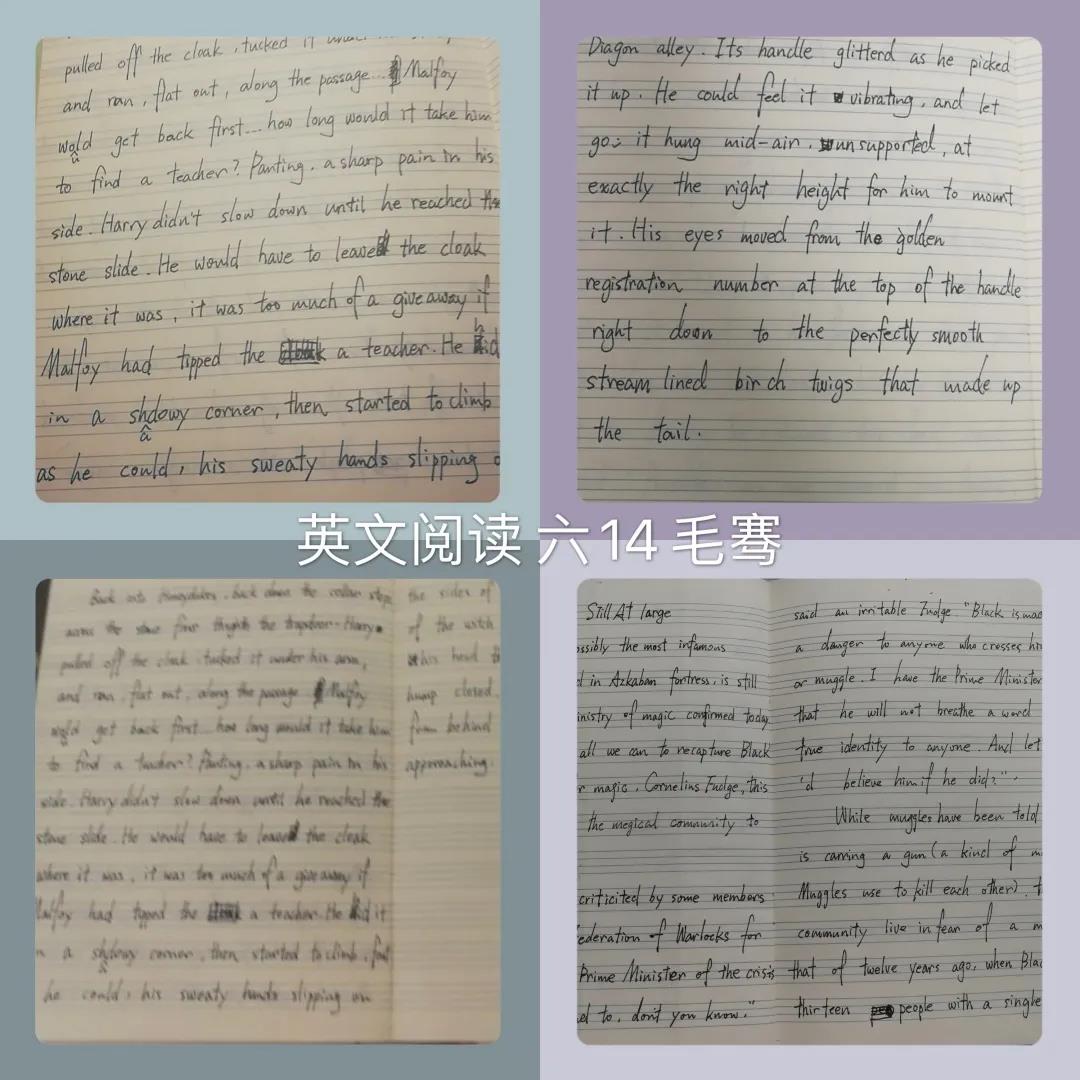 pulled off the cloak, tucked it under
and ran, flat out, along the passage... Malfoy
would get back first... how long would it take him
to find a teacher? Panting, a sharp pain in his
side. Harry didn't slow down until he reached the
stone slide. He would have to leave the cloak
where it was, it was too much of a giveaway if
Malfoy had tipped the a teacher. He hid
in a shadowy corner, then started to climb
as he could, his sweaty hands slipping o
Diagon alley. Its handle glitterd as he picked
it up. He could feel it vibrating, and let
go: it hung mid-air, unsupported, at
exactly the right height for him to mount
it. His eyes moved from the golden
registration number at the top of the handle
right down to the perfectly smooth
stream lined birch twigs that made up
the tail.
英文阅读 六14 毛骞
back down the
Harry
pulled off the cloak, tucked it under his arm,
and ran, flat out, along the passage Malfoy
would get back first... how long would it take him
to find a teacher? Panting, a sharp pain in his
side. Harry didn't slow down until he reached the
stone slide. He would have to leave the cloak
where it was, it was too much of a giveaway if
Malfoy had tipped the a teacher. He hid it
in a shadowy corner, then started to climb, fast
he could, his sweaty hands slipping on
the sides of
of the witch
his head
hump closed,
from behind
approaching.
Still At large
ossibly the most infamous
d in Azkaban fortress, is still
inistry of magic confirmed today
all we can to recapture Black
r magic, Cornelius Fudge, this
the megical community to
criticited by some members
ederation of Warlocks for
Prime Minister of the crisis
ed to, don't you know."
said an irritable Fudge. "Black is mad
a danger to anyone who crosses hi
or muggle. I have the Prime Minister
that he will not breathe a word
true identity to anyone. And let
'd believe him if he did?".
While muggles have been told
is carring a gun (a kind of m
Muggles use to kill each other), t
community live in fear of a m
that of twelve years ago, when Blac
thirteen people with a single